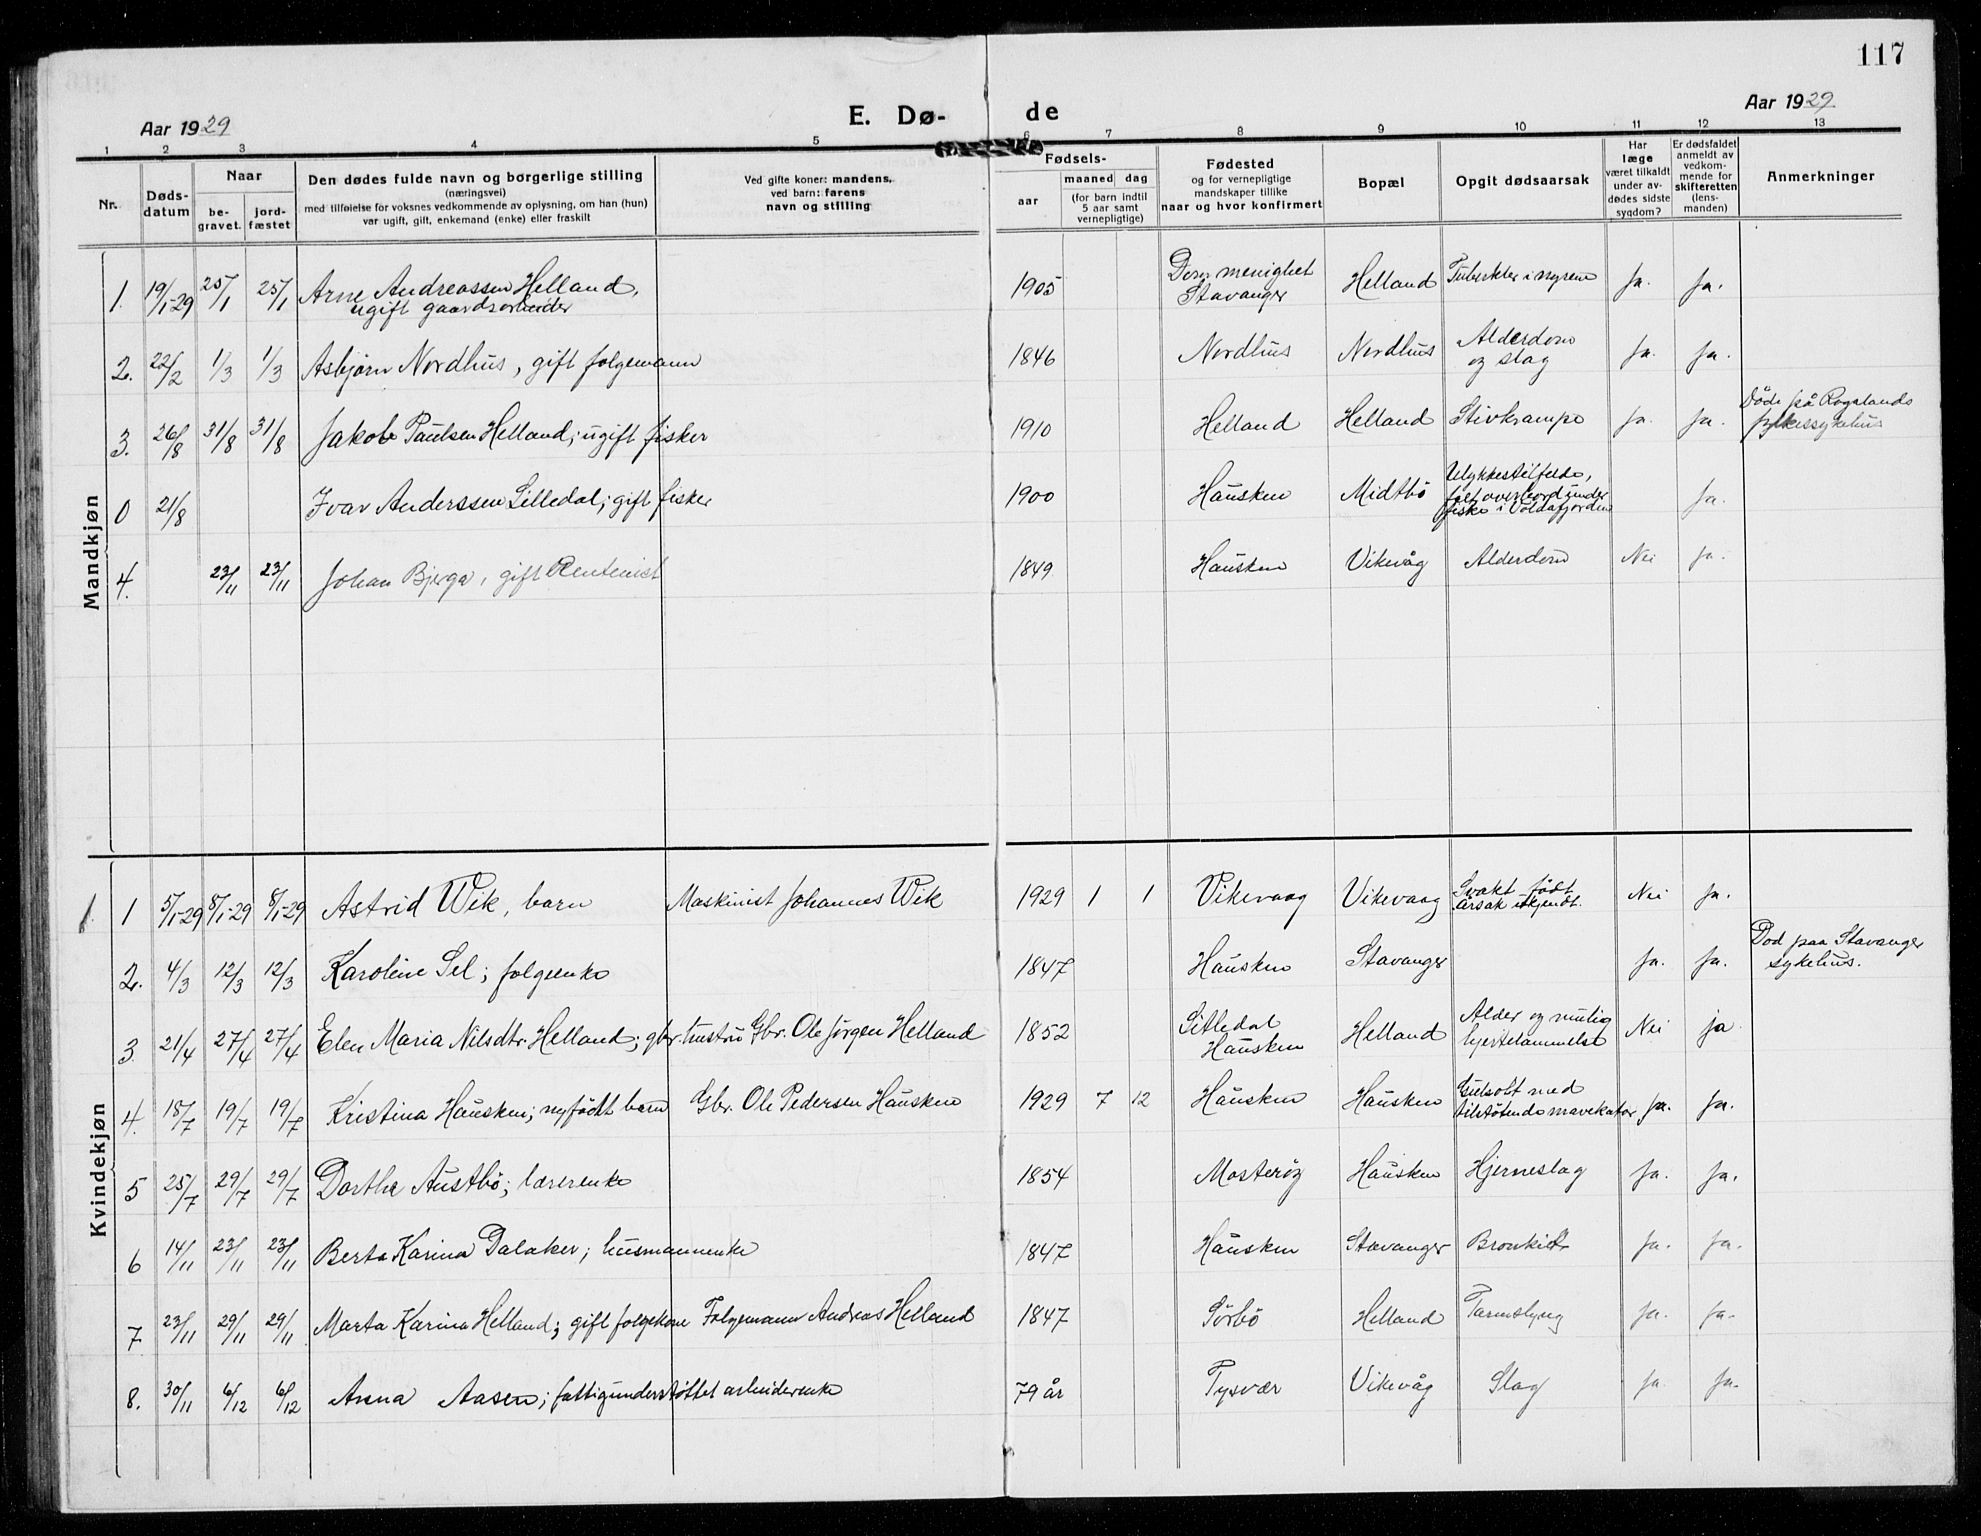 117
Aar 1929
E. Dø-
de
Aar 1929
1 2 3 4 5 6 7 8 9 10 11 12 13
Nr.
Døds-
datum
Naar
be-
gravet.
jord-
fæstet
Den dødes fulde navn og borgerlige stilling
(næringsvei)
med tilføielse for voksnes vedkommende av oplysning, om han (hun)
var ugift, gift, enkemand (enke) eller fraskilt
Ved gifte koner: mandens,
ved barn: farens
navn og stilling
Fødsels-
aar
maaned dag
(for barn indtil
5 aar samt
vernepligtige)
Fødested
og for vernepligtige
mandskaper tillike
naar og hvor konfirmert
Bopæl
Opgit dødsaarsak
Har
læge
været tilkaldt
under av-
dødes sidste
sygdom?
Er dødsfaldet
anmeldt av
vedkom-
mende for
skifteretten
(lens-
manden)
Anmerkninger
Mandkjøn
1. 19/1-29 25/1 25/1 Arne Andreassen Helland,
ugift gaardsarbeider
1905 Dom menighet
Stavanger
Helland Tuberkler i nyrene Ja. Ja.
2. 22/2 1/3 1/3 Asbjørn Nordhus, gift folgemann 1846 Nordhus Nordhus Alderdom
og slag
Ja. Ja.
3. 26/8 31/8 31/8 Jakob Paulsen Helland; ugift fisker 1910 Helland Helland Stivkrampe Ja. Ja. Döde på Rogalands
fylkessykehus
0 21/8 Ivar Anderssen Lilledal; gift fisker 1900 Hausken Midtbö Ulykkestilfelde,
falt overbord under
fiske i Voldafjorden
Ja.
4. 23/11 23/11 Johan Bjerga, gift Rentenist 1849 Hausken Vikevåg Alderdom Nei Ja.
Kvindekjøn
1. 1 5/1-29 8/1-29 8/1-29 Astrid Wik, barn Maskinist Johannes Wik 1929 1 1 Vikevaag Vikevaag Svakt født
årsak ukjendt.
Nei Ja.
2. 4/3 12/3 12/3 Karoline Sel; folgeenke 1847 Hausken Stavanger Ja. Ja. Dod paa Stavanger
sykehus.
3 21/4 27/4 27/4 Elen Maria Nilsdtr. Helland; gbr. hustru Gbr. Ole Jørgen Helland 1852 Lilledal
Hausken
Helland Alder og mulig
hjertelammelse
Nei ja
4. 18/7 19/7 19/7 Kristina Hausken; nyfödt barn Gbr. Ole Pedersen Hausken 1929 7 12 Hausken Hausken Gulsott med
tilstötende mavekatar Ja. Ja.
5 25/7 29/7 29/7 Dorthe Austbö; lærerenke 1854 Mosteröy Hausken Hjerneslag Ja. Ja.
6 14/11 23/11 23/11 Berta Karina Dalaker; husmannenke 1847 Hausken Stavanger Bronkitt Ja. Ja.
7. 23/11 29/11 29/11 Marta Karina Helland; gift folgekone Folgemann Andreas Helland 1847 Sörbö Helland Tarmslyng Ja. Ja.
8. 30/11 6/12 6/12 Anna Aasen; fattigunderstöttet arbeiderenke 79 år Tysvær Vikevåg Slag Ja Ja.